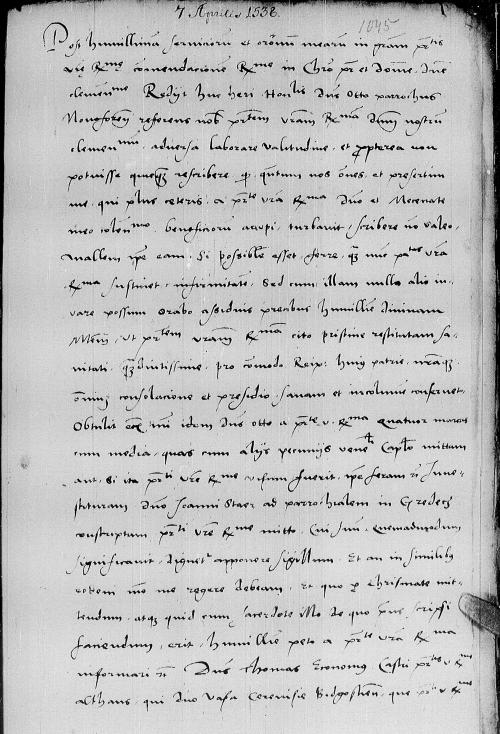 7 Aprilis 1538.
1045
Post humillimam serviciorum et oracionum mearum in gratiam p. tis
v. re R. me comendacionem R. me in Chro pr et Domine, Dne
clemen. me Redijt huc heri Ho. lis Dns Otto parrochus
Novoforen. referens nob. pr. tem vram R. mam dnum nostrum
clemen. mum adversa laborare valitudine, et propterea non
potuisse quicq. rescribere q. quantum nos omnes, et presertim
me, qui plus ceteris, a pr. te vra R. ma Dno et Mecenate
meo colen. mo beneficiorum accepi, turbavit, scribere no valeo.
Mallem ipse eam, si possibile esset, ferre, quam nunc p. tas vra
R. ma sustinet infirmitatem, Sed cum illam nullo alio iu-
vare possum orabo assiduis precibus humillime divinam
M. tem, ut pr. tem vram R. mam cito pristine restitutam sa-
nitati, quam diutissime, pro comodo Reip. huius patrie, nramq.
omnium consolacione et presidio, sanam et incolumem conservet.
Obtulit mihi idem Dns Otto a pr. te v. R. ma quatuor marcas
cum media, quas cum alijs pecunijs vene. li Cap. lo mittam
aut, si ita pr. ti vre R. me visum fuerit, ipse feram. Inve-
stituram Dno Joanni Staer ad parrochialem in
conscriptam pr. ti vre R. me mitto, Cui suum, quemadmodum
significavit, dignetur apponere sigillum, Et an in similibus
eodem modo me regere debeam, et quo p. Chrismate mit-
tendum, atq. quid cum sacerdote illo de quo prius scripsi
faciendum erit, humillime peto a pr. te vra R. ma
informari. Dns Thomas Economus Castri pr. tis v. R. me
althaus, qui duo vasa Cerevisie Bidgostien. que pr. ti v. R. me